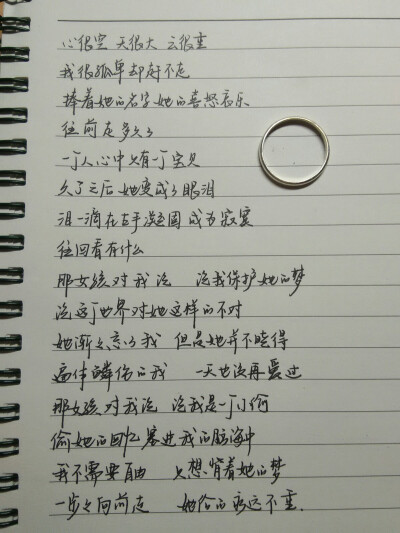 心很空 天很大 云很重
我很孤单却赶不走
捧着她的名字她的喜怒哀乐
往前走多久了
一个人心中只有一个宝贝
久了之后她变成了眼泪
泪一滴在左手凝固成为寂寞
往回看有什么
那女孩对我说 说我保护她的梦
说这个世界对她这样的不多
她渐渐忘了我 但是她并不晓得
遍体鳞伤的我 一天也没再爱过
那女孩对我说 说我是一个小偷
偷她的回忆塞进我的脑海中
我不需要自由 只想背着她的梦
一步步向前走 她给的永远不重